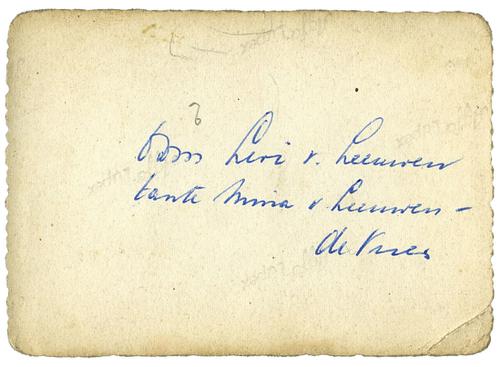 6
Oom Levi v. Leeuwen
tante Mina v Leeuwen -
de Vries